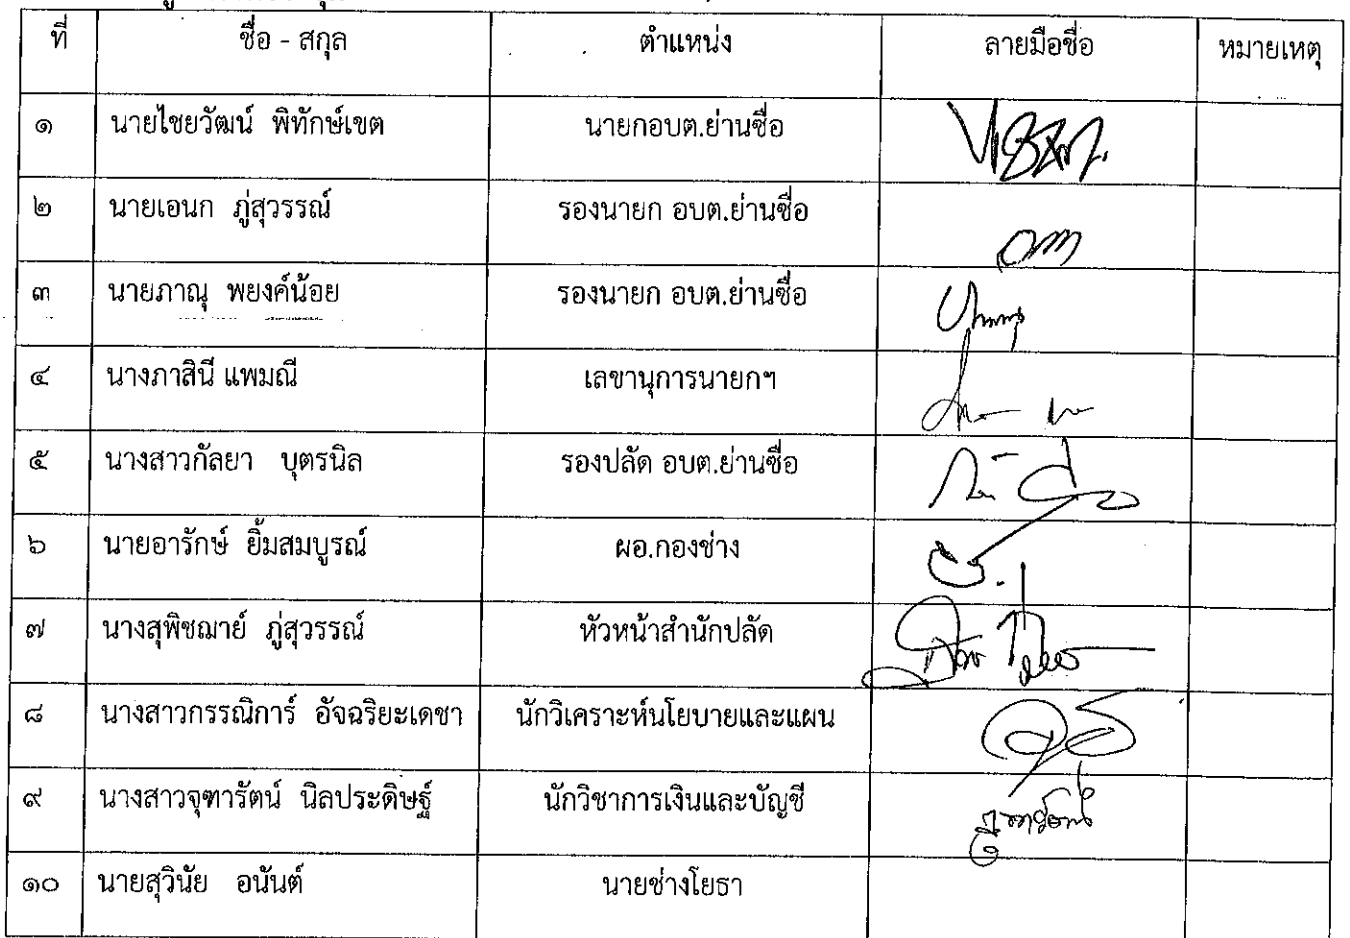 ที่ ชื่อ - สกุล ตำแหน่ง ลายมือชื่อ หมายเหตุ
๑ นายไชยวัฒน์ พิทักษ์เขต นายกอบต.ย่านซื่อ
๒ นายเอนก ภู่สุวรรณ์ รองนายก อบต.ย่านซื่อ
๓ นายภาณุ พยงค์น้อย รองนายก อบต.ย่านซื่อ
๔ นางภาสินี แพมณี เลขานุการนายกฯ
๕ นางสาวกัลยา บุตรนิล รองปลัด อบต.ย่านซื่อ
๖ นายอารักษ์ ยิ้มสมบูรณ์ ผอ.กองช่าง
๗ นางสุพิชฌาย์ ภู่สุวรรณ์ หัวหน้าสำนักปลัด
๘ นางสาวกรรณิการ์ อัจฉริยะเดชา นักวิเคราะห์นโยบายและแผน
๙ นางสาวจุฑารัตน์ นิลประดิษฐ์ นักวิชาการเงินและบัญชี
๑๐ นายสุวินัย อนันต์ นายช่างโยธา